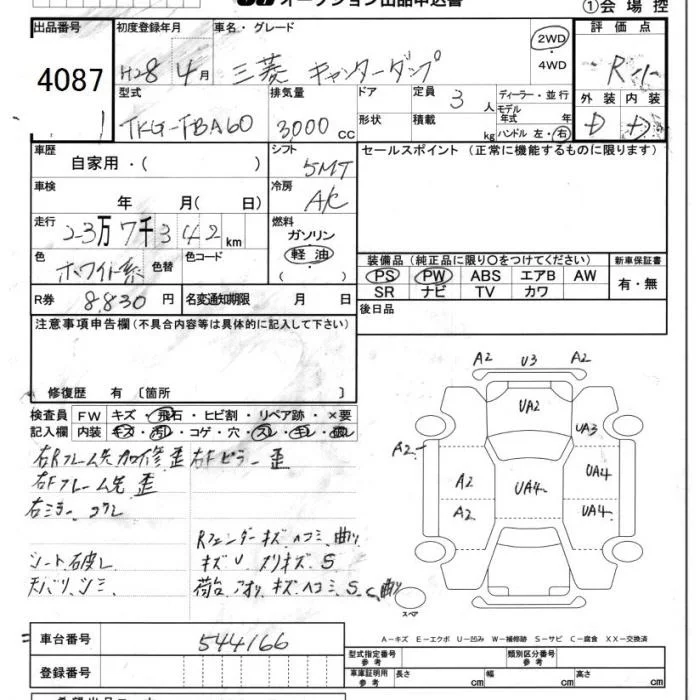 オークション出品申込書
①会場控
出品番号
4087
初度登録年月 車名・グレード
H28年4月 三菱 キャンターダンプ
2WD
・
4WD
評価点
R
外装 内装
D D
型式 排気量 ドア 定員 3人 ディーラー・並行
TKG-FBA60 3,000 CC
形状 積載 kg
モデル年式 年
ハンドル 左・右
車歴
自家用・( )
シフト
5MT
車検
年 月( 日)
冷房
A/C
走行
23万7千342 km
燃料
ガソリン
軽油
( )
色 ホワイト系 色替 色コード
R券 8,830円 名変通知期限 月 日
セールスポイント(正常に機能するものに限ります)
装備品(純正品に限り○をつけてください) 新車保証書
PS PW ABS エアB AW
SR ナビ TV カワ
有・無
後日品
注意事項申告欄(不具合内容等は具体的に記入して下さい)
修復歴 有〔箇所 〕
検査員 FW キズ・飛石・ヒビ割・リペア跡・×要
記入欄 内装 キズ・汚レ・コゲ・穴・スレ・キレ・破レ
右Rフレーム先加修歪 右Fピラー歪
右Fフレーム先歪
右ミラー
Rフェンダーキズ、ヘコミ、曲り
シート破レ キズU スリキズ S
天バリ、シミ、 荷台、アオリ、キズ、ヘコミ、S、C、曲り
A2 U3 A2
UA2
UA3
A2
A2 UA4 UA4
A2 UA4
スペア
A－キズ E－エクボ U－凹み W－補修跡 S－サビ C－腐食 XX－交換済
車台番号 544166
登録番号
型式指定番号 参考 類別区分番号 参考
車庫証明用 参考 長さ cm 幅 cm 高さ cm